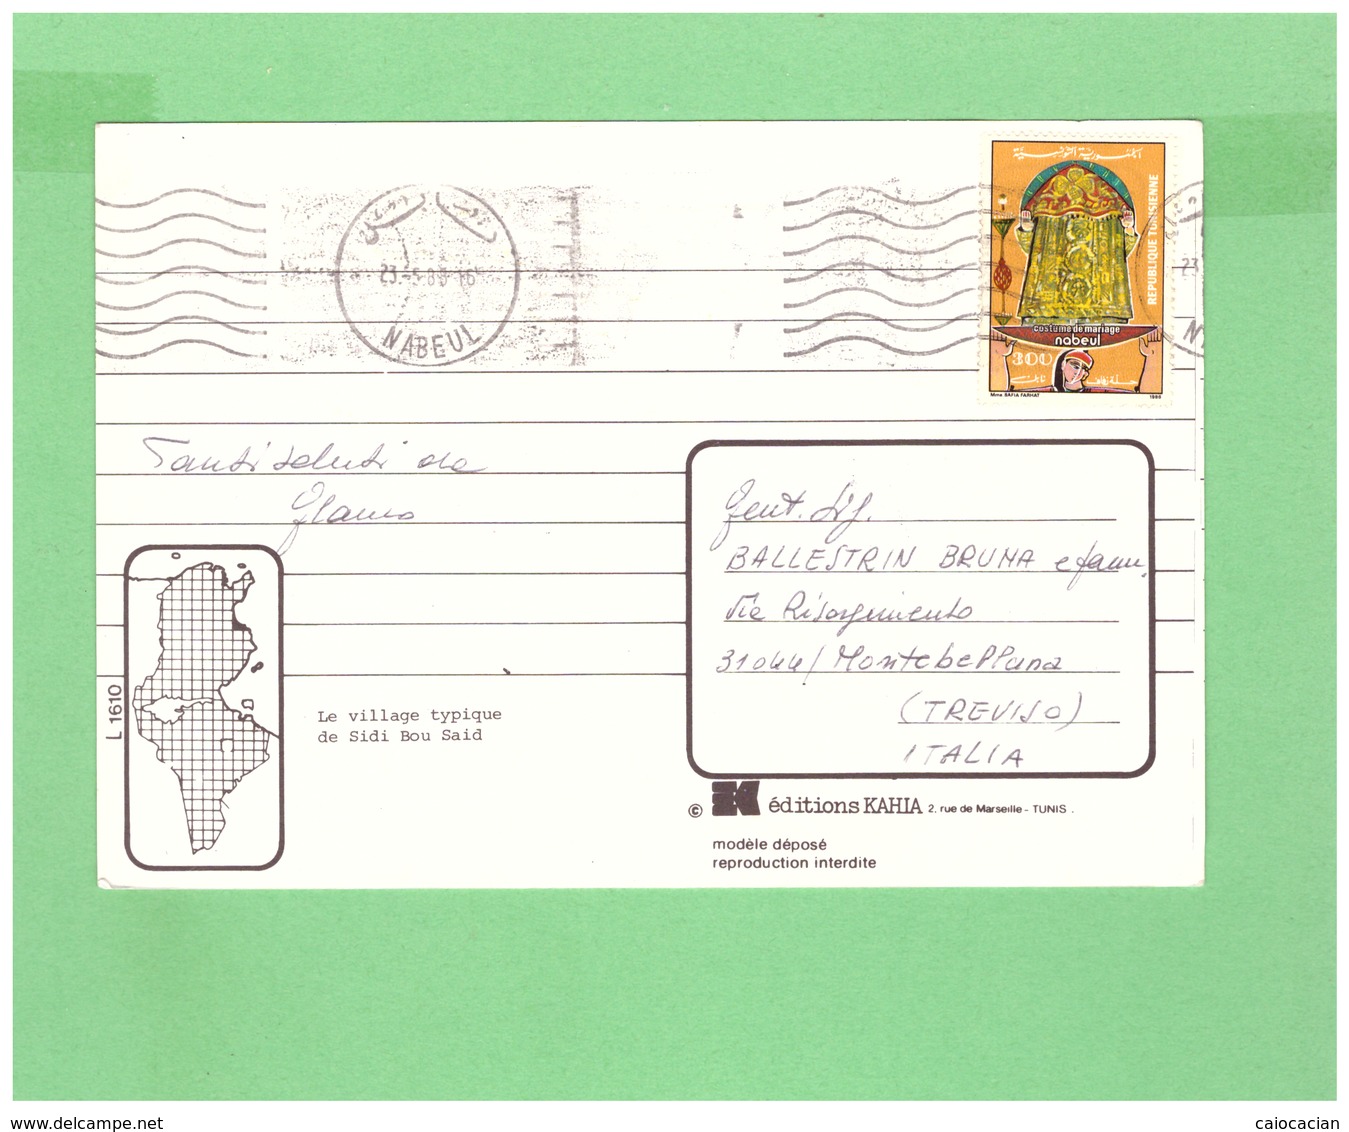 الجمهورية التونسية
REPUBLIQUE TUNISIENNE
costume de mariage
nabeul
300
Mme SAFIA FARHAT 1986
NABEUL
Tanti saluti da
Gent. Sig.
BALLESTRIN BRUNA e fam.
Via Risorgimento
31044/ Montebelluna
(TREVISO)
ITALIA
L 1610
Le village typique
de Sidi Bou Said
© éditions KAHIA 2, rue de Marseille - TUNIS .
modèle déposé
reproduction interdite
www.delcampe.net
caiocacian